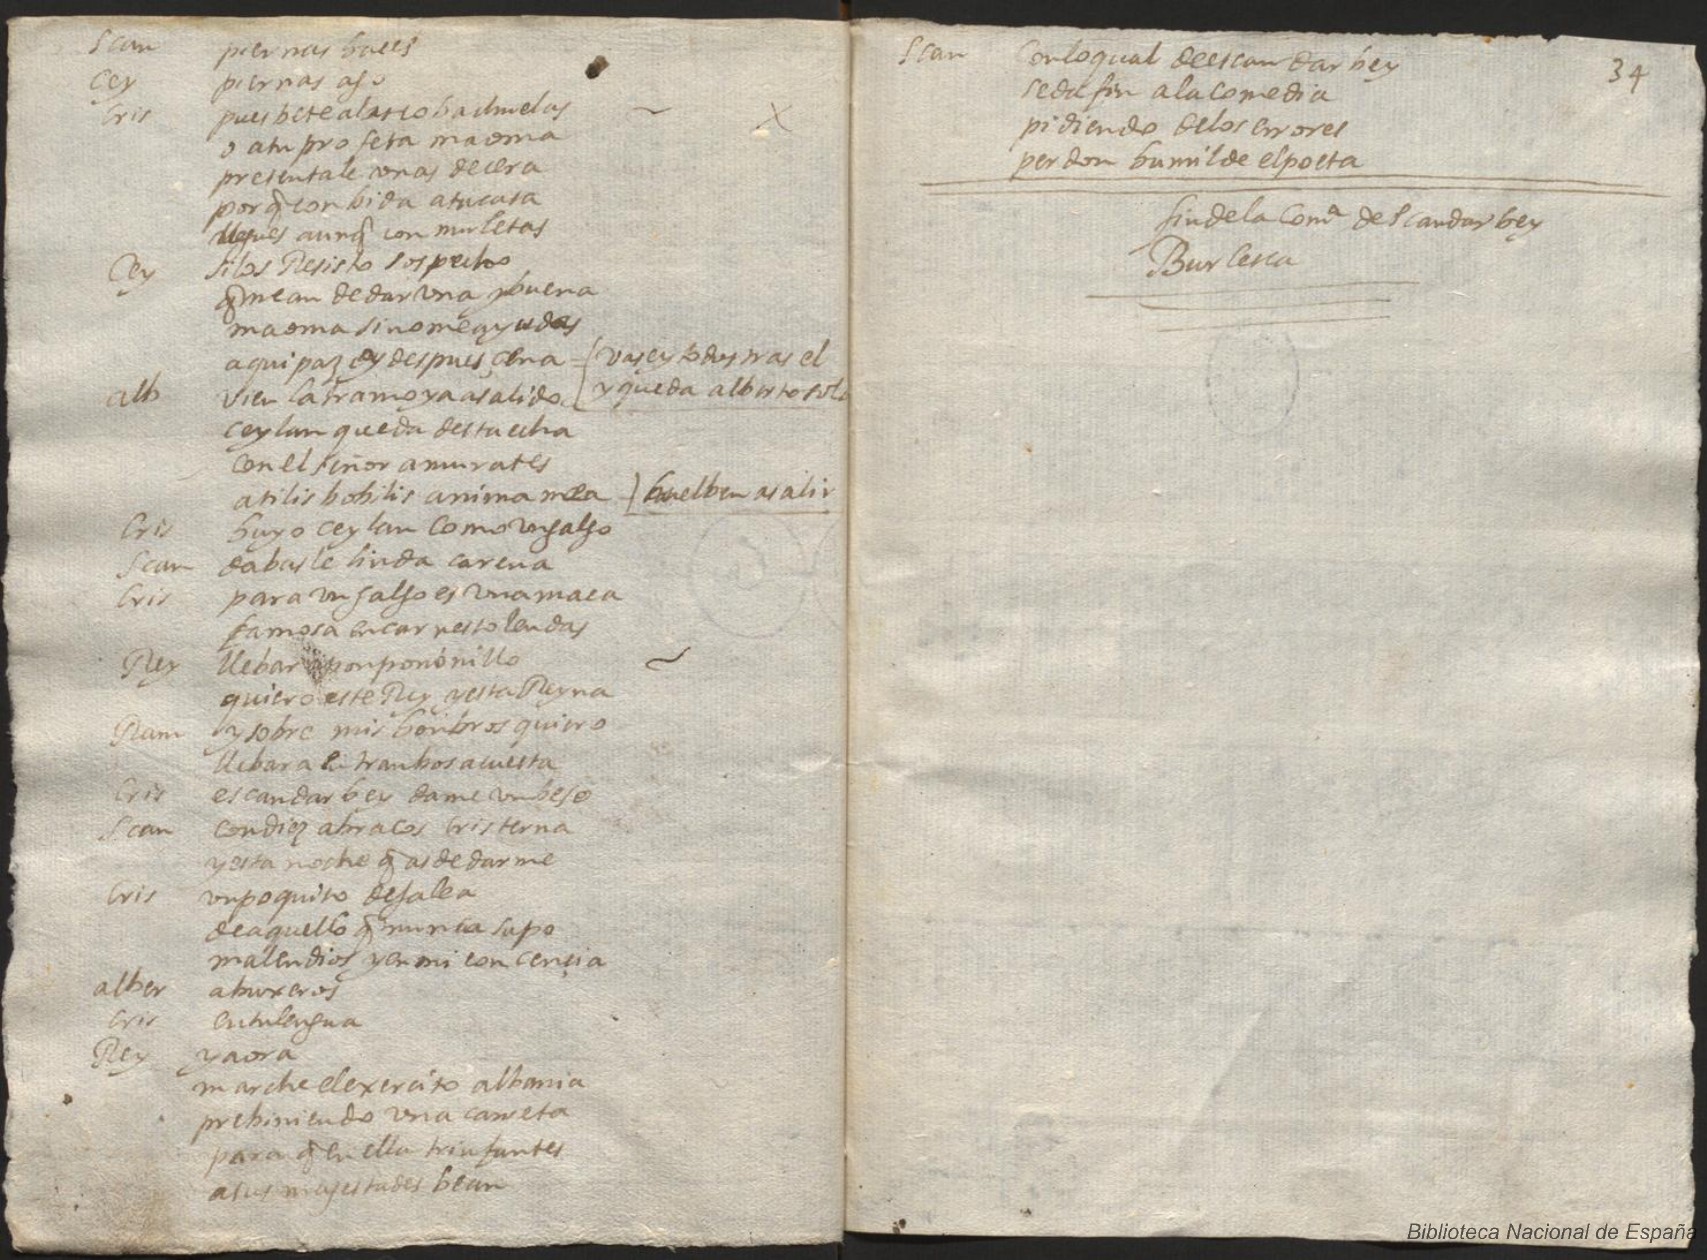 Scan piernas baces
Cey piernas ago
Cris pues bete alas cobachuelas
o atu profeta maoma
presentale conas de cera
por q̃ con bida atucasa
llegues aunq̃ con muletas
Cey silos Resisto sospecho
q̃ mean dedar una y buena
maoma sinome ayudas
aqui paz ey despues cena (vas ey todos tras el
alb vien la tramoya asalido (y queda alberto solo
ceylan queda destaecha
con el señor amurates
atilis bobilis anima mea ) buelben asalir
Cris huyo ceylan como un galgo
Scan dabasle linda carena
Cris para un galgo es una maça
famosa en carnestolendas
Rey llebar aponponònillo
quiero este Rey yesta Reyna
Ram y sobre mis honbros quiero
llebar a entranbos acuesta
Cris escandarbey dame un beso
Scan con diez abraços cristerna
yesta noche q̃ as de darme
Cris un poquito de galea
de aquello q̃ nunca supo
mal en dios yen mi concençia
alber abuxeros
Cris en tu lengua
Rey y aora
marche el exercito albania
prebiniendo una carreta
para q̃ en ella triunfantes
a sus magestades bean
34
Scan Con lo qual de escandarbey
se da fin a la Comedia
pidiendo de los errores
perdon humilde el poeta
fin de la Comª de Scandarbey
Burlesca
Biblioteca Nacional de España